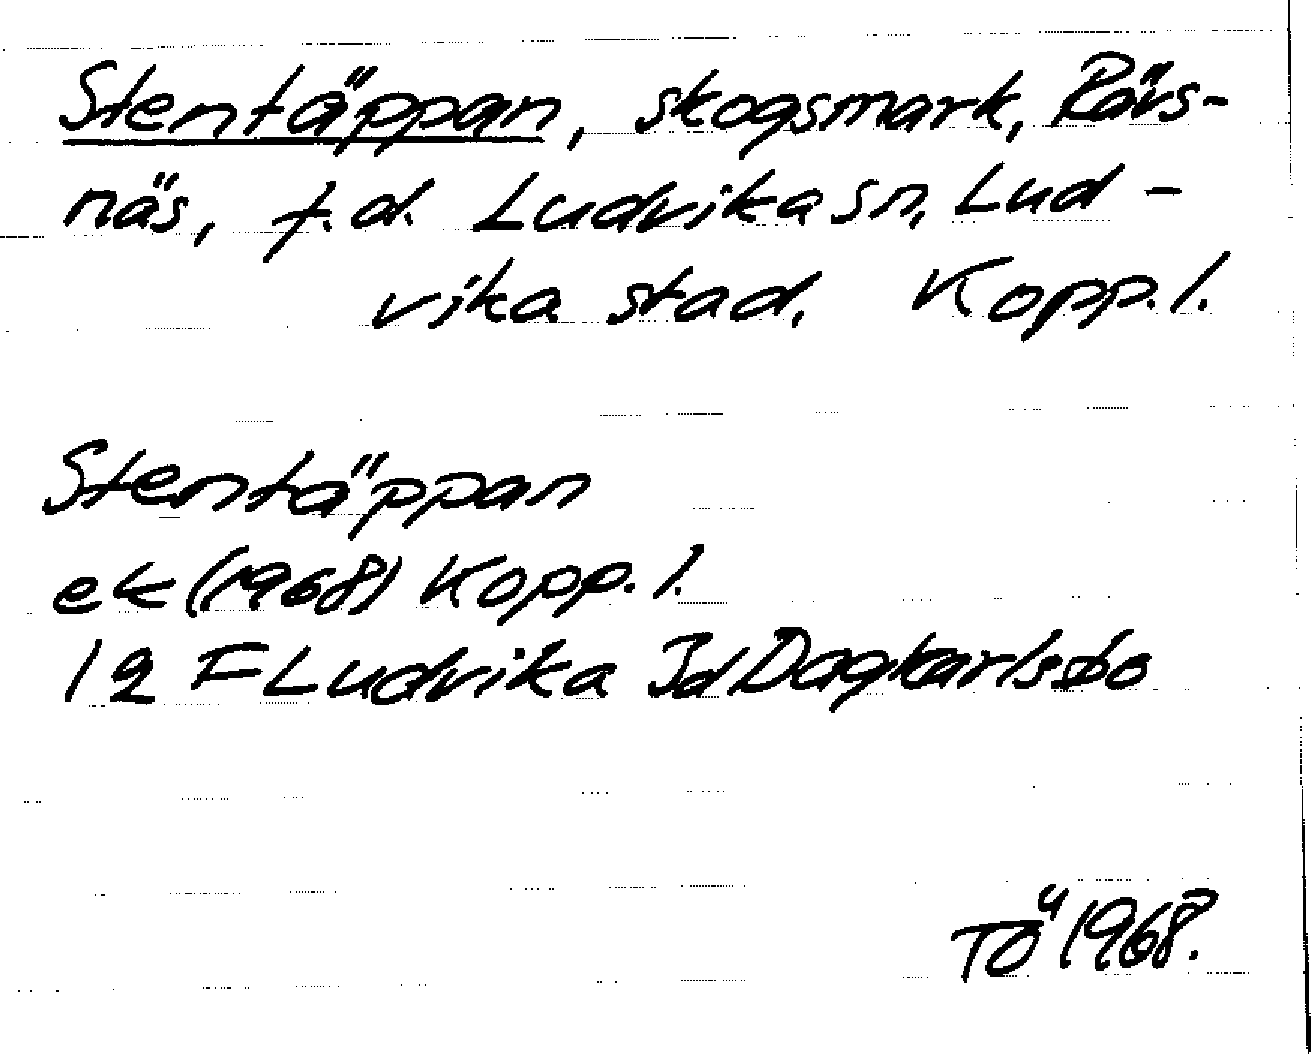 Stentäppan, skogsmark, Rävs-
näs, f.d. Ludvika sn, Lud-
vika stad, Kopp. l.
Stentäppan
ek (1968) Kopp. l.
12 F Ludvika Jd Dagkarlsbo
TÖ 1968.